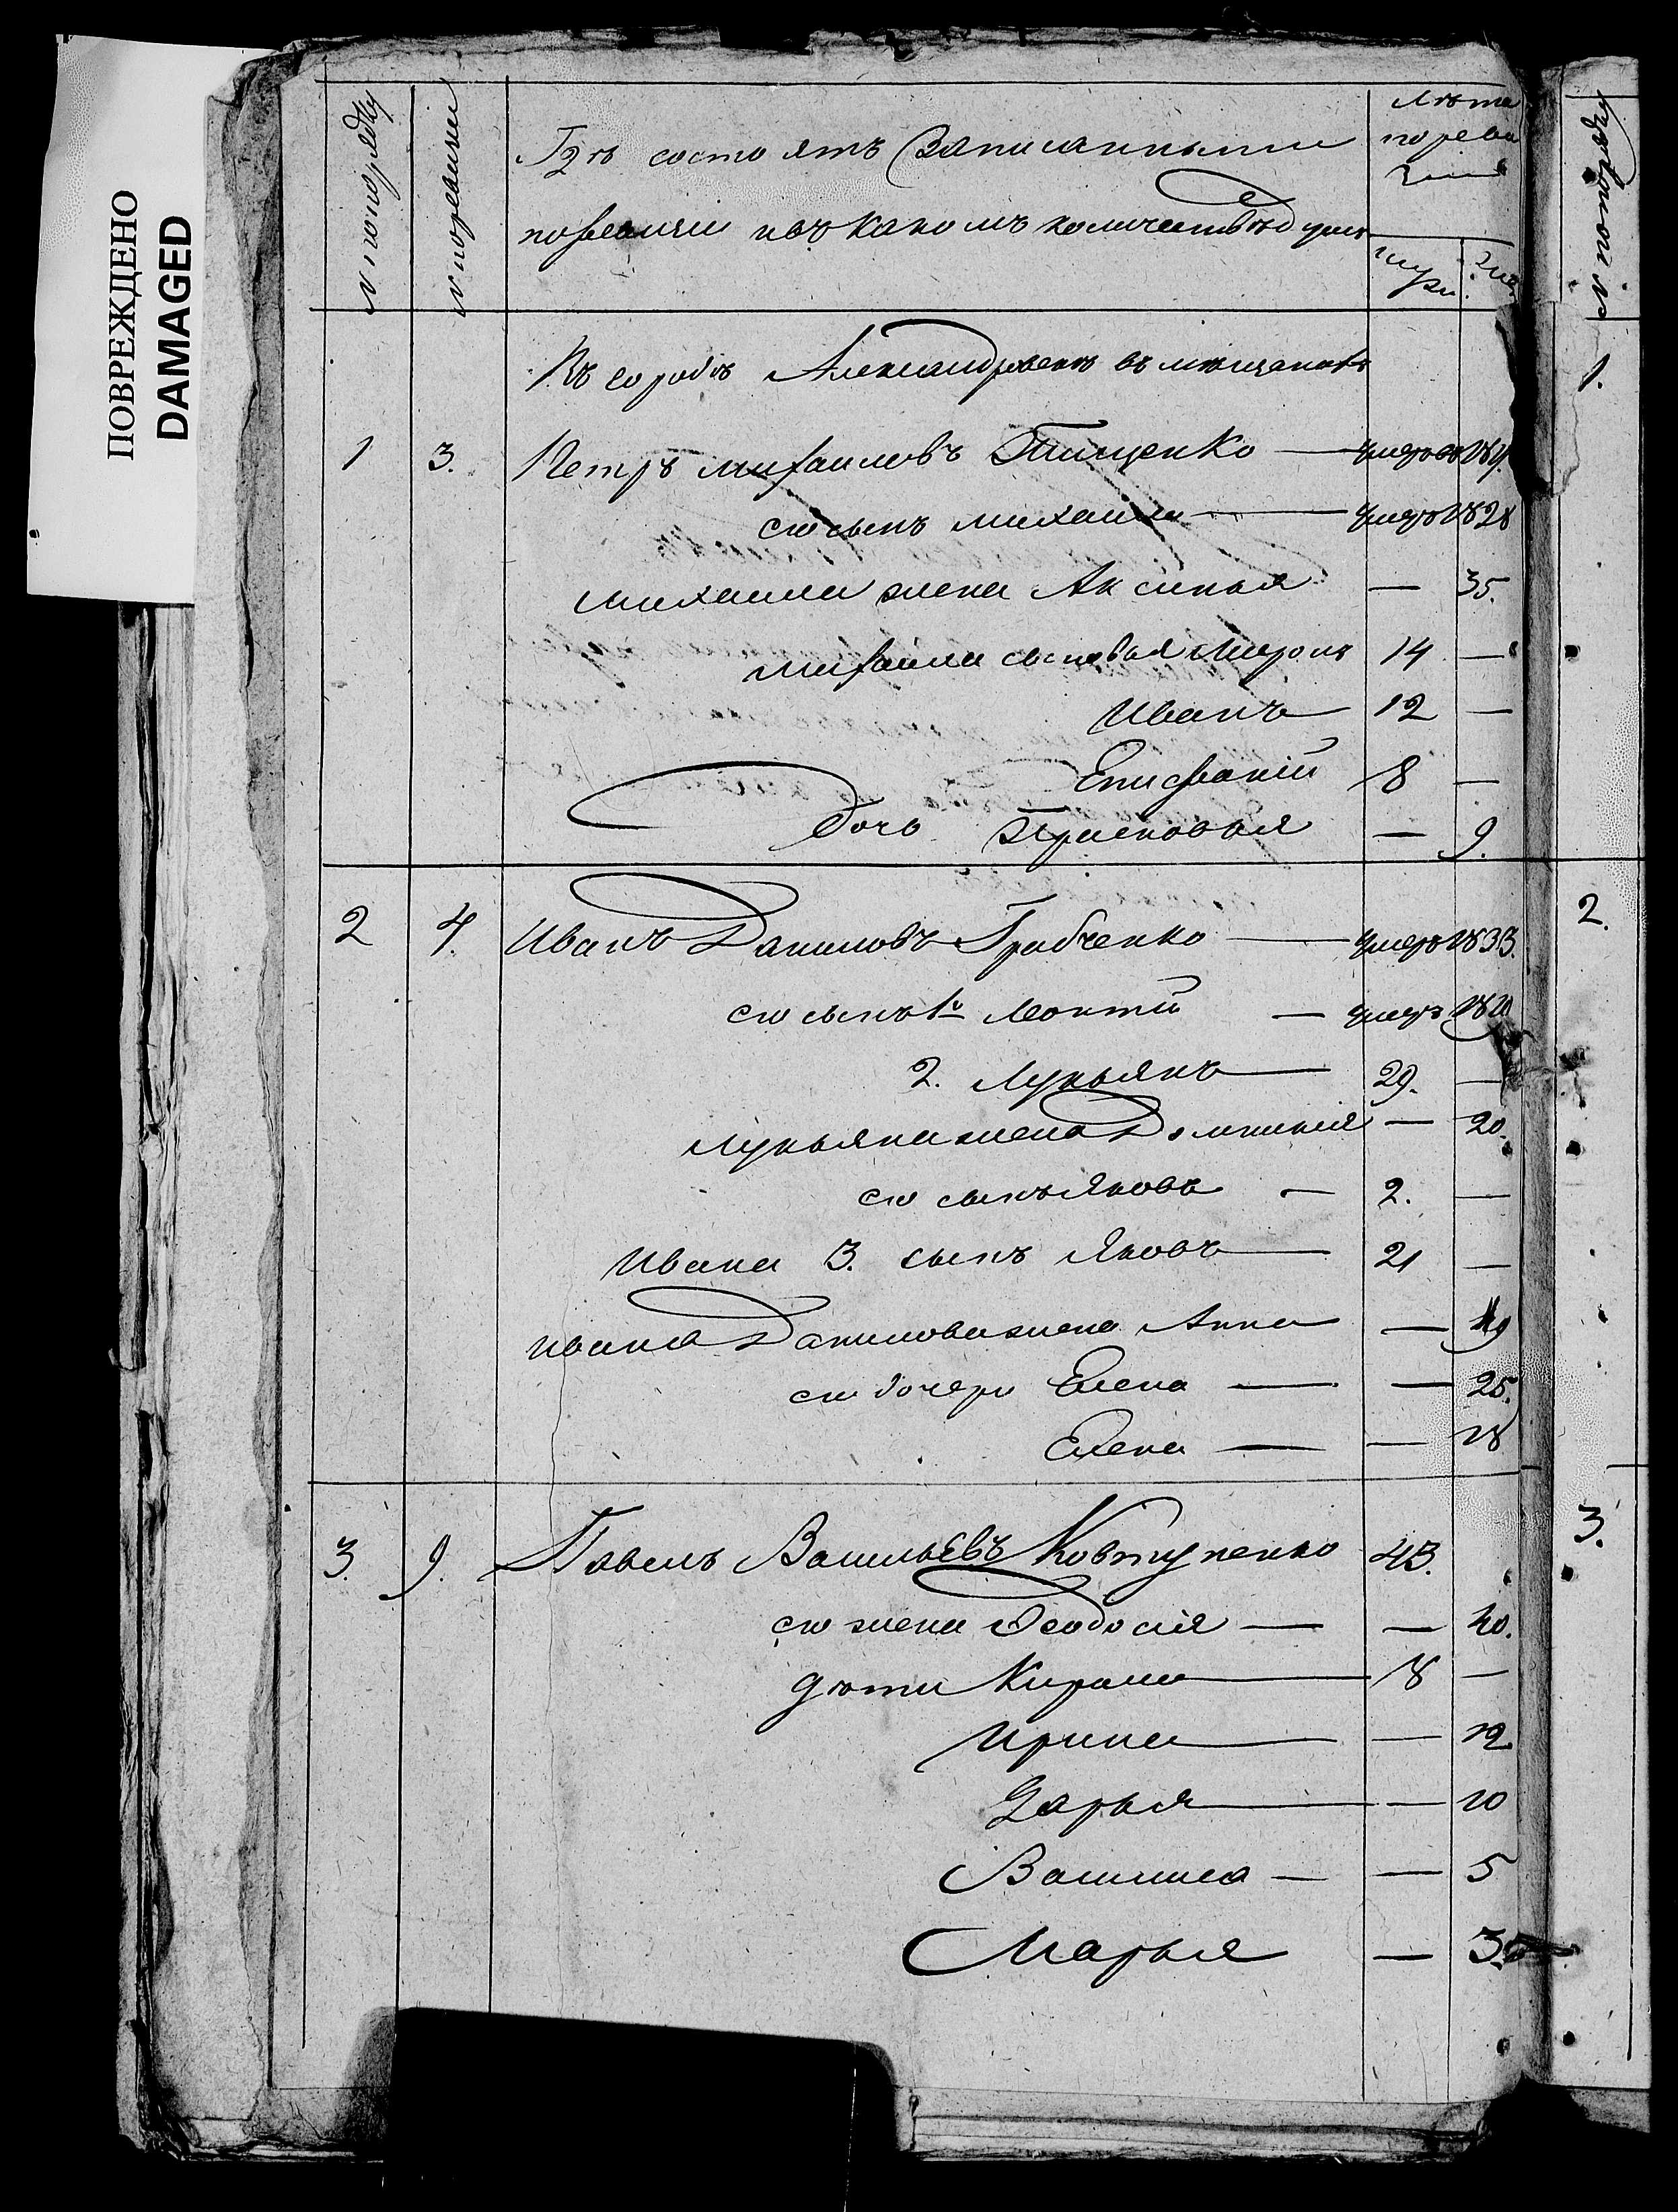 ПОВРЕЖДЕНО
DAMAGED
№ по порядку
№ по ревизии
Где состоятъ записанными
по ревизіи и въ какомъ количествѣ душъ
Лѣта
по реви
зіи
муж.
жен.
№ по порядку
Въ городѣ Александровскѣ въ мѣщанахъ
1.
1 3. Петръ Михайловъ Тищенко — умеръ въ
его сынъ Михаила — умеръ 1828
Михаила жена Аксинья — 35.
Михаила сыновья Миронъ 14 —
Иванъ 12 —
Епифаній 8 —
дочь Прасковья — 9.
2 4. Иванъ Даниловъ Грабченко — умеръ 1833.
2.
его сынъ 1й Леонтій — умеръ
2. Лукьянъ — 29. —
Лукьяна жена Домникія — 20.
его сынъ Яковъ — 2. —
Ивана 3. сынъ Яковъ — 21 —
Ивана Данилова жена Анна —
ее дочери Елена — — 25.
Елена — — 18
3. 9. Павелъ Васильевъ Ковтуненко 43.
3.
его жена Феодосія — — 40.
дѣти Кирила — 18 —
Ирина — — 12
Дарья — — 10
Василиса — — 5
Марья — 3.